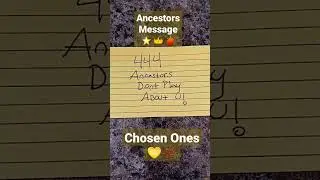 Ancestors
Message
⭐👑🍎
444
Ancestors
Dont Play
About U!
Chosen Ones
💛💯